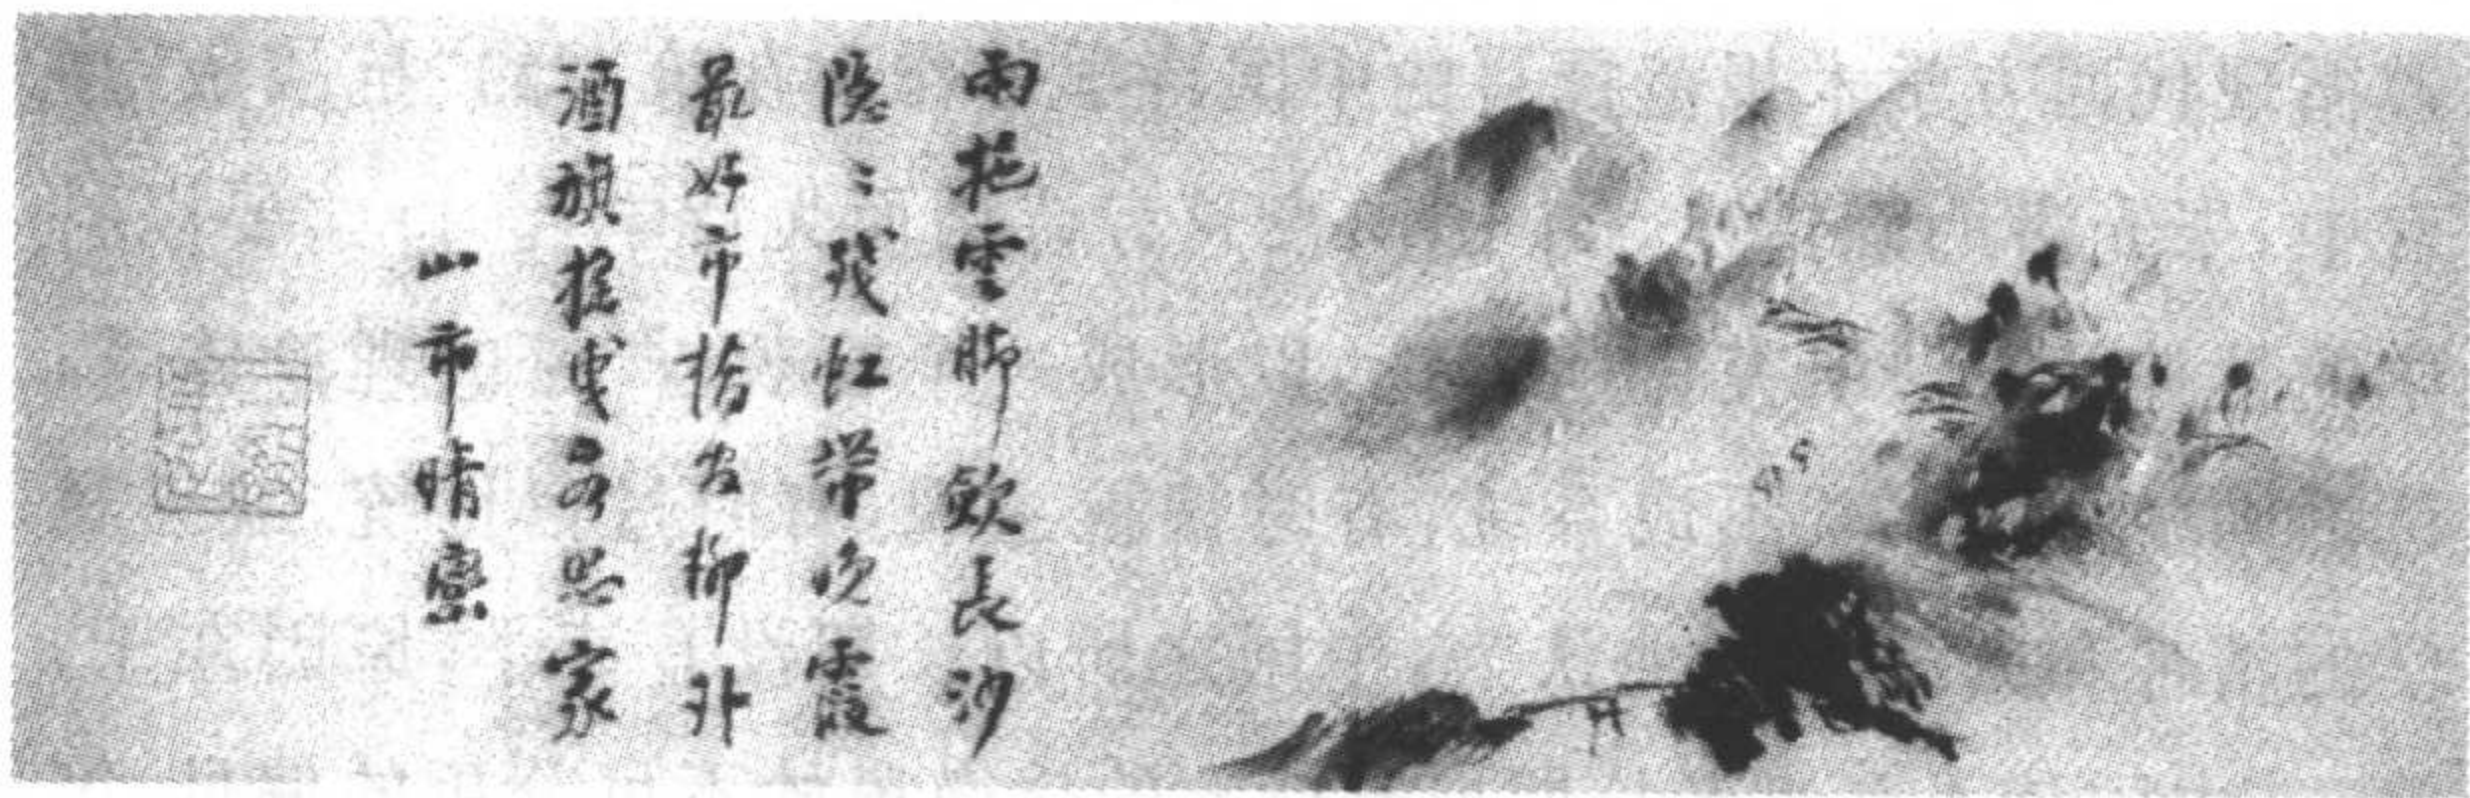 雨拖雲脚斂長沙
隱々殘虹帶晚霞
最好市橋官柳外
酒旗搖曳客思家
山市晴巒